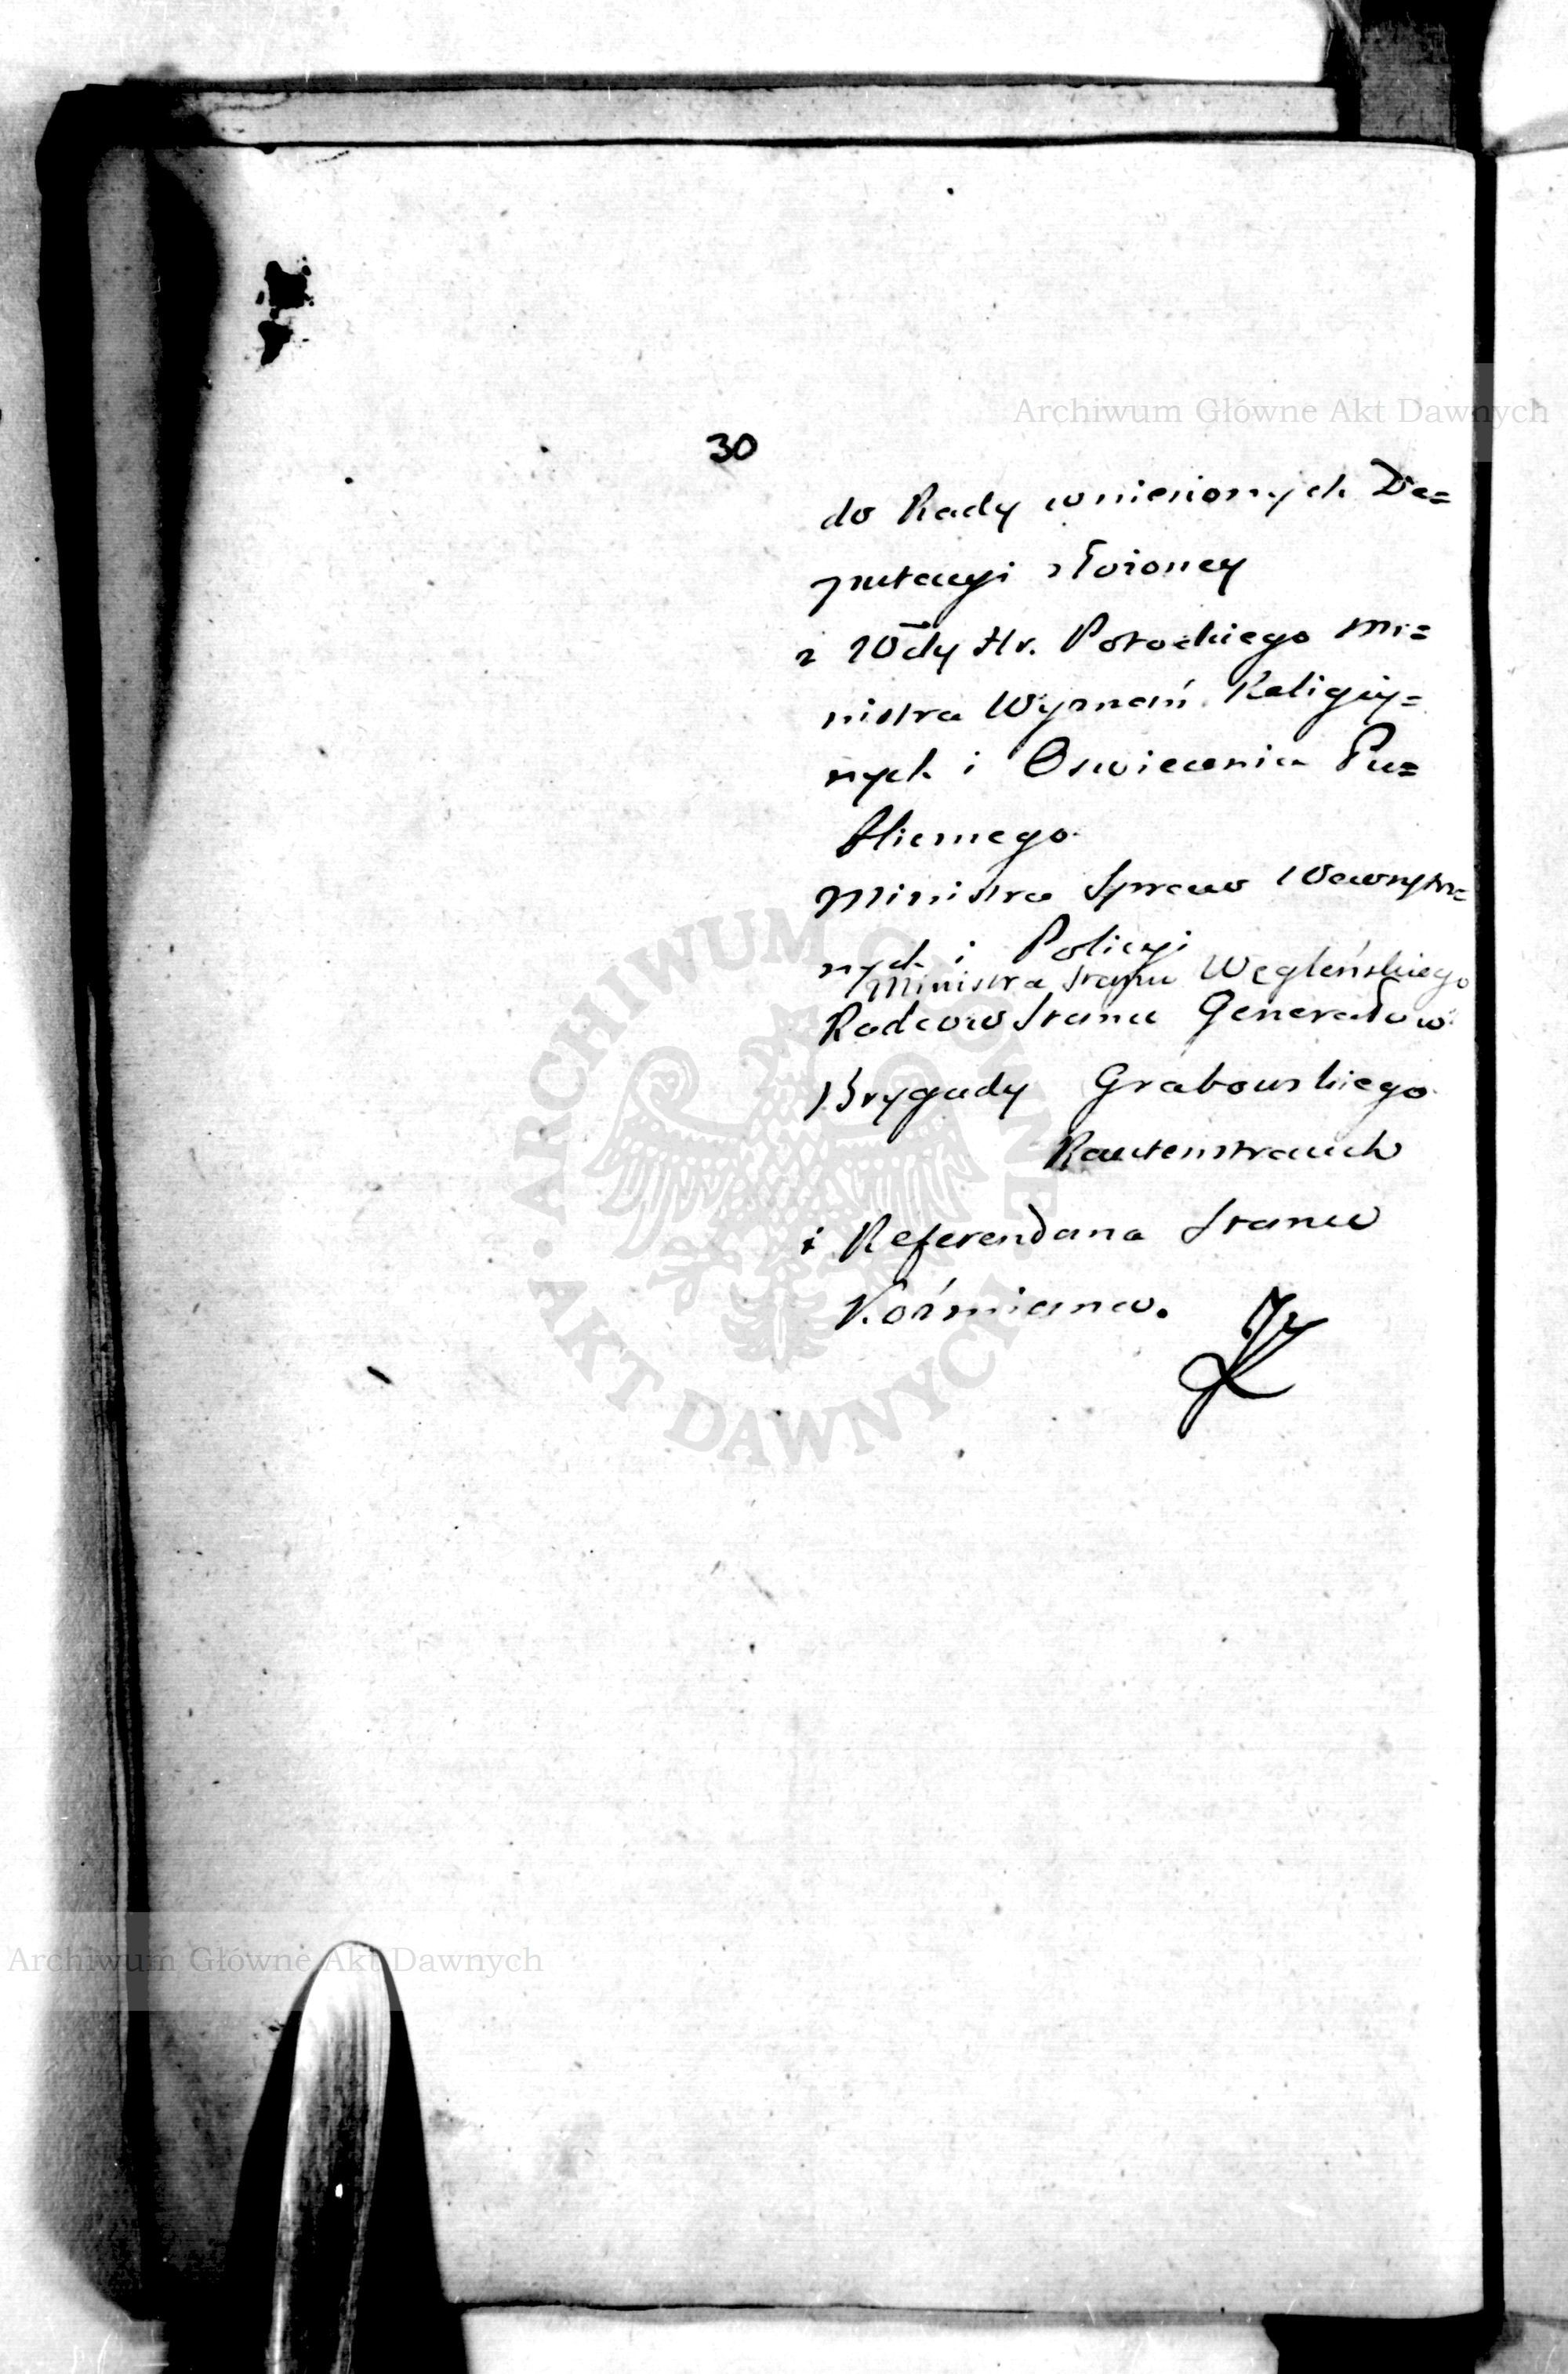 Archiwum Główne Akt Dawnych
30
do Rady wniesionych De=
putacyi złożoney
z Wdy Hr. Potockiego Mi=
nistra Wyznań Religiy=
nych i Oswiecenia Pu=
blicznego
Ministra Spraw Wewnętrz=
nych i Policyi
Ministra Stanu Węgleńskiego
Radcow Stanu Generałow
Brygady Grabowskiego
Rautenstrauch
i Referendarza Stanu
Koźmiana.
ARCHIWUM GŁÓWNE · AKT DAWNYCH ·
Archiwum Główne Akt Dawnych